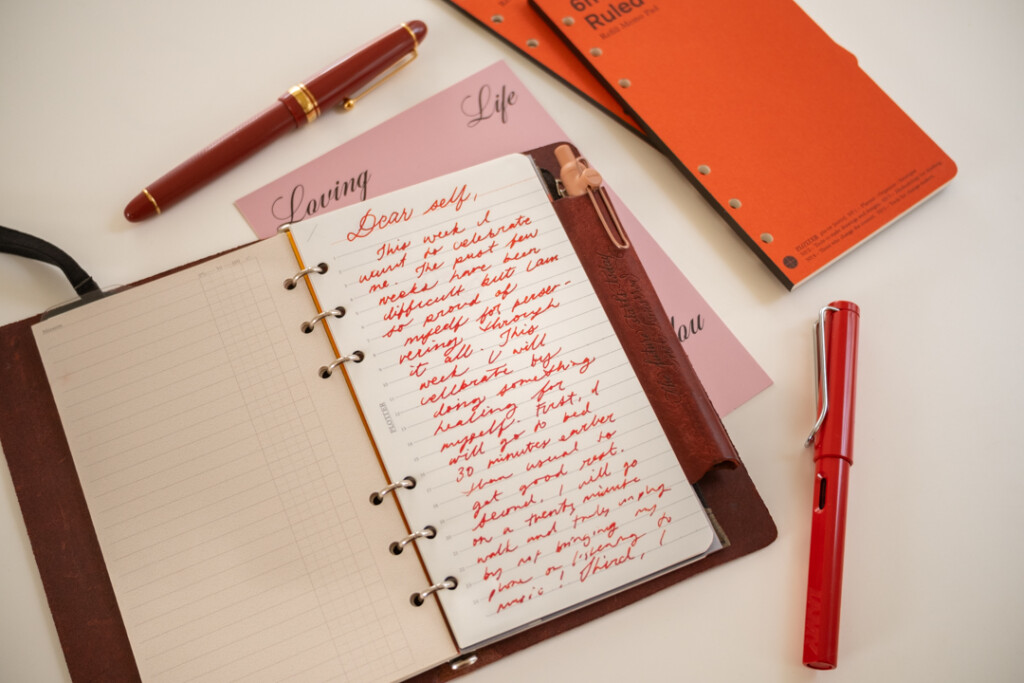 Life
Loving
You
6m
Ruled
Refill Memo Pad
PLOTTER
PLOTTER
Dear self,
This week I
want to celebrate
me. The past few
weeks have been
difficult but I am
so proud of
myself for perser-
vering through
it all. This
week I will
cellbrate by
doing something
healing for
myself. First, I
will go to bed
30 minutes earlier
than usual to
get good rest.
Second, I will go
on a twenty minute
walk and truly unplug
by not bringing my
phone or listening to
music! Third, I